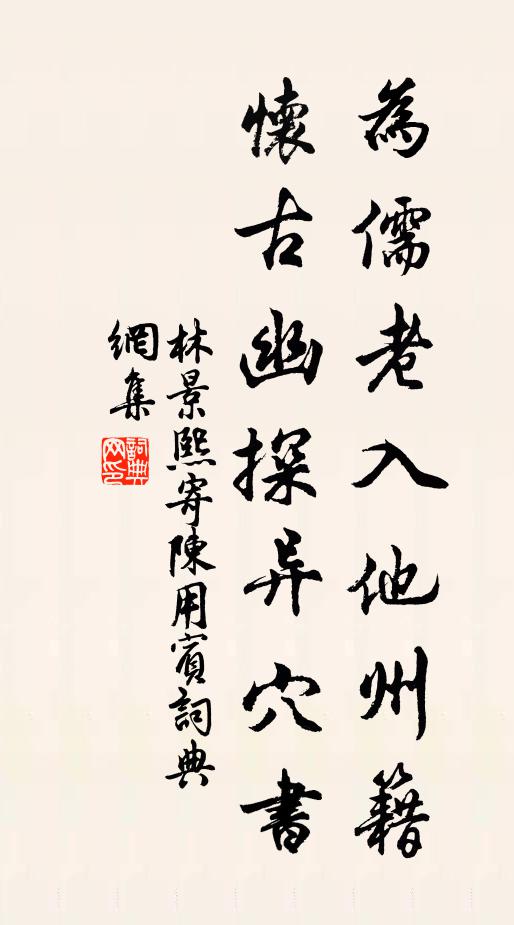 為儒老入他州籍
懷古幽探异穴書
林景熙寄陳用賓詞典
網集
詞典
网印